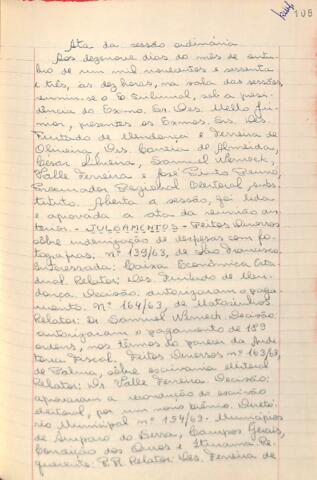 108
Ata da sessão ordinária
Aos dezenove dias do mês de outu-
bro de um mil novecentos e sessenta
e três, às dez horas, na sala das sessões,
reuniu-se o E. Tribunal, sob a presi-
dência do Exmo. Sr. Des. Mello Jú-
nior, presentes os Exmos. Srs. Des.
Furtado de Mendonça e Ferreira de
Oliveira, Drs. Corrêia de Almeida,
César Silveira, Samuel Werneck,
Valle Ferreira e José
Procurador Regional Eleitoral, subs-
tituto. Aberta a sessão, foi lida
e aprovada a ata da reunião an-
terior. - JULGAMENTOS - Feitos Diversos
sôbre indenização de despesas com fo-
tografias. nº 139/63, de São Francisco.
Interessada: Caixa Econômica Esta-
dual. Relator: Des. Furtado de Men-
donça. Decisão: autorizaram o paga-
mento. Nº 164/63, de Matosinhos
Relator: Dr. Samuel Werneck. Decisão:
autorizaram o pagamento de 189
ordens, nos têrmos do parecer da Audi-
toria Fiscal. Feitos Diversos nº 163/63,
de Palma, sôbre escrivania eleitoral
Relator: Dr. Valle Ferreira. Decisão:
aprovaram a recondução do escrivão
eleitoral, por um novo biênio. Diretó-
rio Municipal nº 154/63 - Municípios
de Amparo do Serra, Campos Gerais,
Conceição dos Ouros e Itanama. Re-
querente: P.R. Relator: Des. Ferreira de